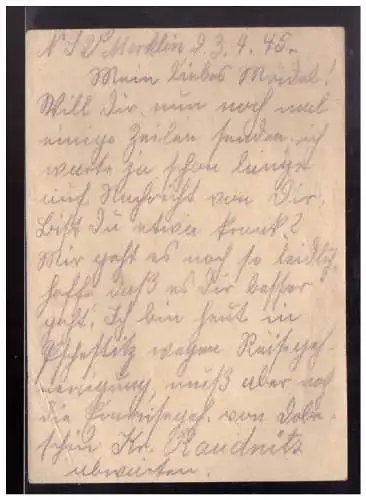 NSV Merklin d. 3. 4. 45.
Mein liebes Mädel!
Will Dir nun noch mal
einige Zeilen senden, ich
warte ja schon lange
auf Nachricht von Dir.
Bist Du etwa krank?
Mir geht es noch so leidlich,
hoffe daß es Dir besser
geht. Ich bin heut in
Pschestitz wegen Reisegeh-
nemigung, muß aber noch
die von Dobe-
schin Kr. Raudnitz
abwarten.